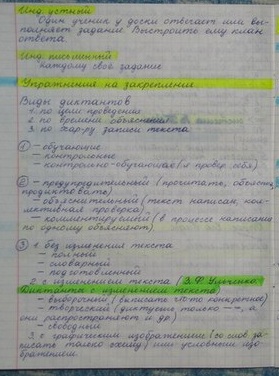 Инд. устный
Один ученик у доски отвечает или вы-
полняет задание. Выстроить ему план
ответа.
Инд. письменный
Каждому своё задание
Упражнения на закрепление
Виды диктантов
1. по цели проведения
2. по времени объяснения
3. по хар-ру записи текста
① – обучающие
– контрольные
– контрольно-обучающие (я провер себя)
② – предупредительный (прочитать, объяснить,
продиктовать)
– объяснительный (текст написан, кол-
лективная проверка)
– комментируемый (в процессе написания
по одному объясняют)
③ 1. без изменения текста
– полный
– словарный
– подготовленный
2. с изменением текста (З.Ф. Ульченко
"Диктанты с изменением текста)
– выборочный (выписать что-то конкретное)
– творческий (диктуешь только —, а
они распространяют и др)
– свободный
3. с графическим изображением (со слов за-
писать только схему) или условным изо-
бражением.